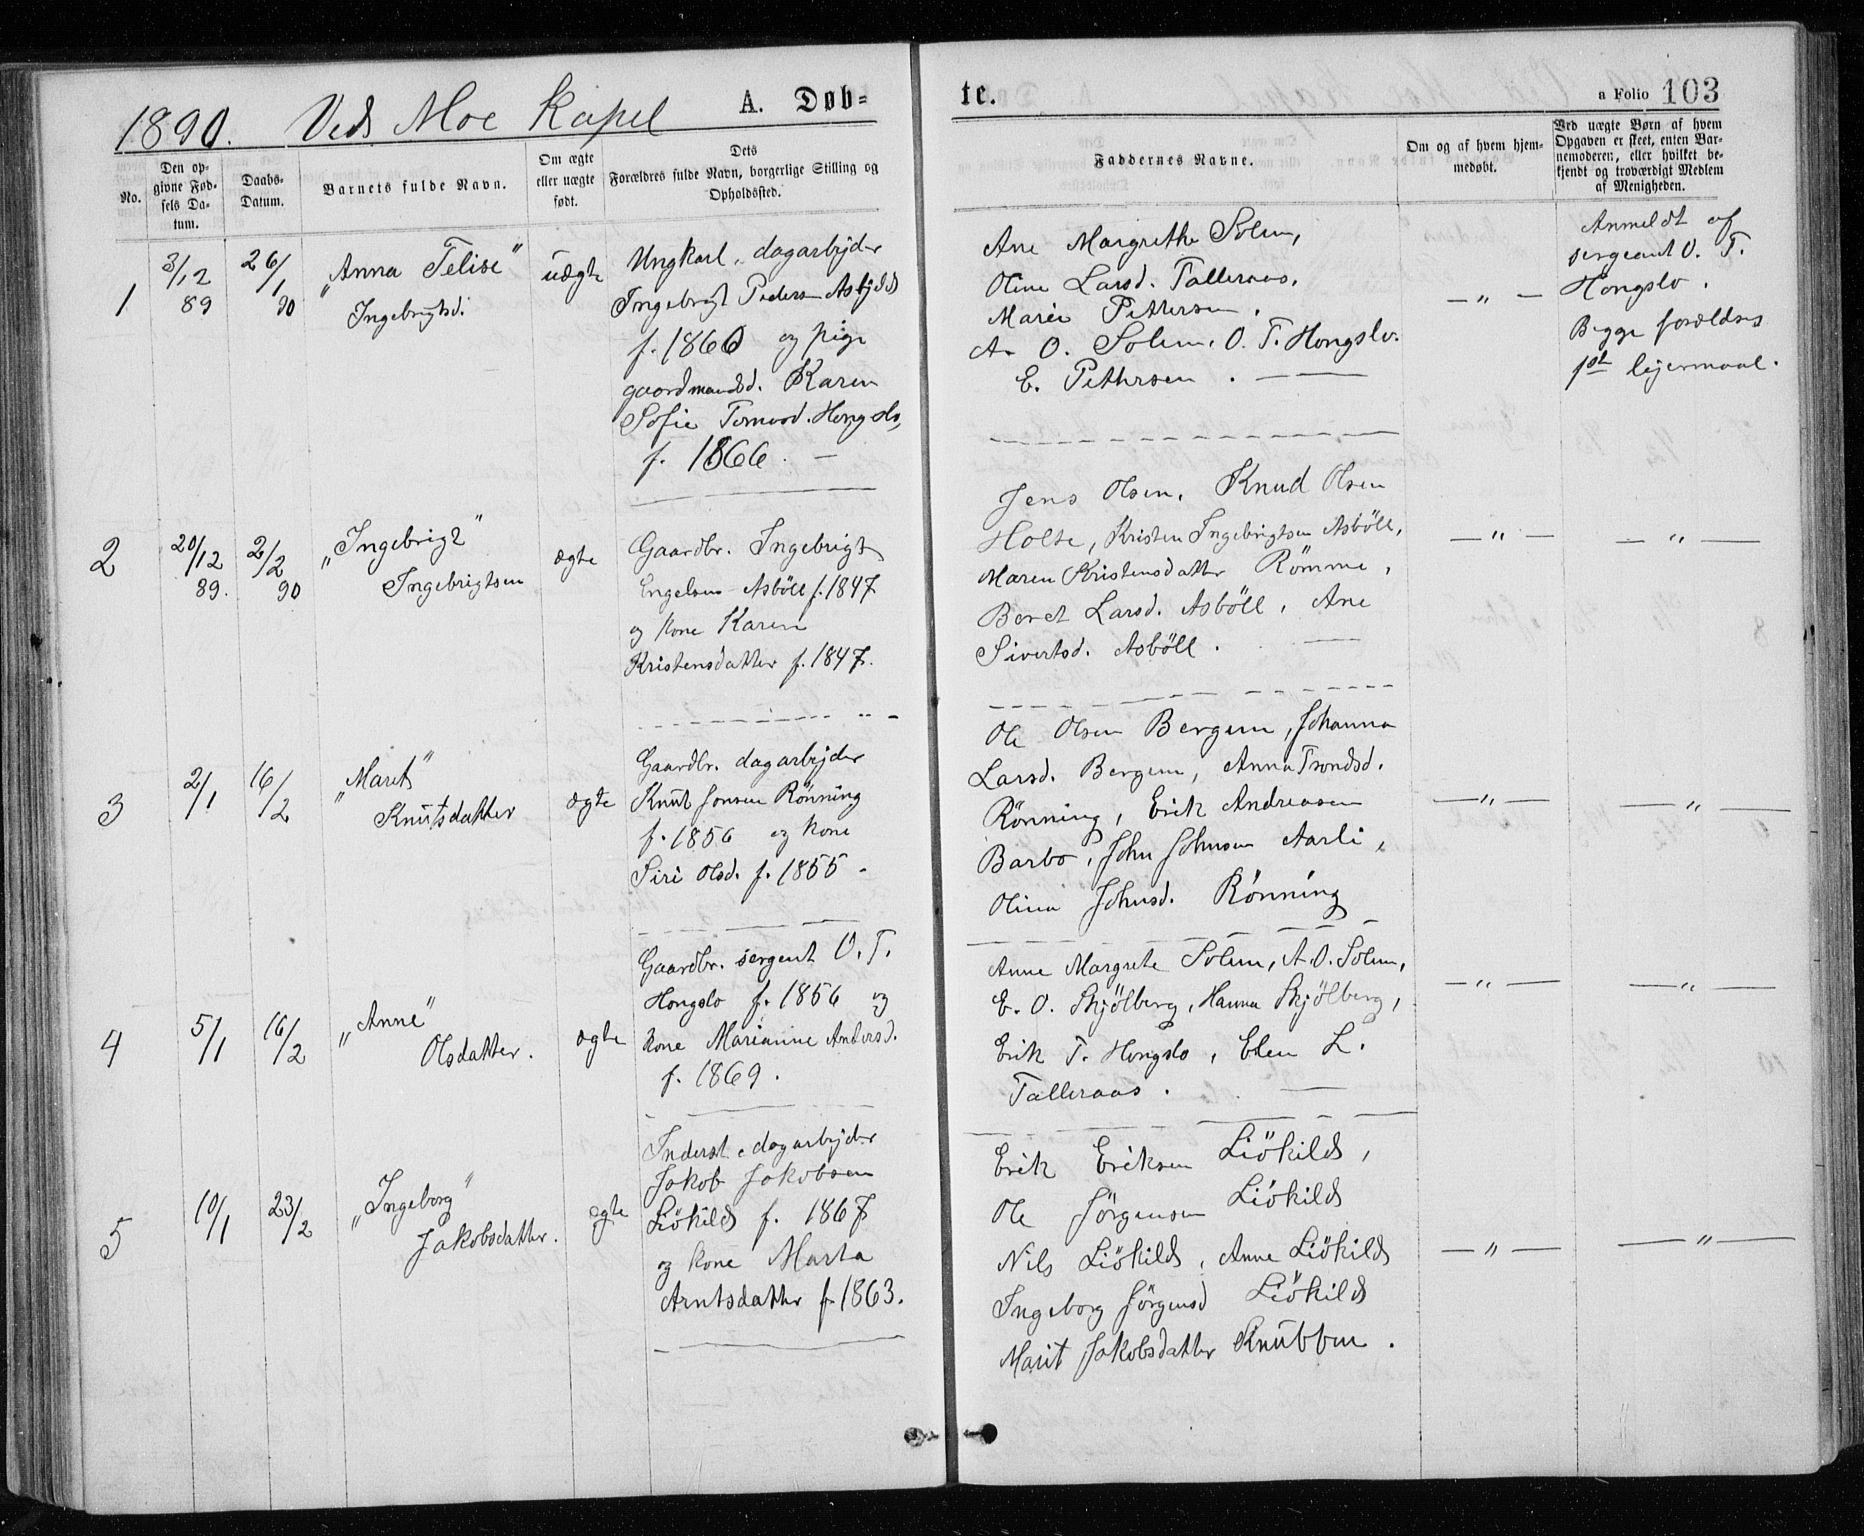 1890. Ved Moe Kapel A. Døb=
te. a Folio 103
No.
Den op-
givne Fød-
sels Da-
tum.
Daabs-
Datum.
Barnets fulde Navn.
Om ægte
eller uægte
født.
Dets
Forældres fulde Navn, borgerlige Stilling og
Opholdssted.
Faddernes Navne.
Om og af hvem hjem-
medøbt.
Ved uægte Børn af hvem
Opgaven er skeet, enten Bar-
nemoderen, eller hvilket be-
kjendt og troværdigt Medlem
af Menigheden.
1
3/12
89
26/1
90
"Anna Felise"
Ingebrigtsd.
uægte
Ungkarl, dagarbejder
Ingebrigt Peders
f. 1860 og pige
gaardmandsd. Karen
Sofie Hongslo,
f. 1866. —
Ane Margrethe Solem,
Oline Larsd. Talleraas,
Marie Pettersen,
A. O. Solem, O. T. Hongslo.
E. Pettersen. —
— " —
Anmeldt af
sergeant O. T.
Hongslo.
Begge forældres
1st lejermaal.
2
20/12
89.
2/2
90
"Ingebrigt"
Ingebrigtsen
ægte
Gaardbr. Ingebrigt
Engelsen Asböll f. 1847
og kone Karen
Kristensdatter f. 1847.
Jens Olsen, Knud Olsen
Holte, Kristen Ingebrigtsen Asböll,
Maren Kristensdatter Römme,
Beret Larsd. Asböll, Ane
Sivertsd. Asböll. —
— " —
— " —
3
2/1
16/2
"Marit"
Knutsdatter
ægte
Gaardbr. dagarbejder
Knut Jonsen Rönning
f. 1856 og kone
Siri Olsd. f. 1855 -
Ole Olsen Bergem, Johanna
Larsd. Bergem, Anna Trondsd.
Rönning, Erik Andreasen
Barbo, John Johnsen Aarli,
Olina Johnsd. Rönning
— " —
— " —
4
5/1
16/2
"Anne"
Olsdatter.
ægte
Gaardbr. sergent O. T.
Hongslo f. 1856 og
kone Marianne Andersd.
f. 1869.
Anne Margrete Solem, A. O. Solem,
E. O. Skjölberg, Hanna Skjölberg,
Erik T. Hongslo, Elen L.
Talleraas. —
— " —
— " —
5
10/1
23/2
"Ingeborg"
Jakobsdatter.
ægte
Inderst, dagarbejder
Jakob Jakobsen
Liökild f. 1867
og kone Marta
Arntsdatter f. 1863.
Erik Eriksen Liökild,
Ole Jörgensen Liökild
Nils Liökild, Anne Liökild
Ingeborg Jörgensd Liökild
Marit Jakobsdatter Knubben.
— " —
— " —